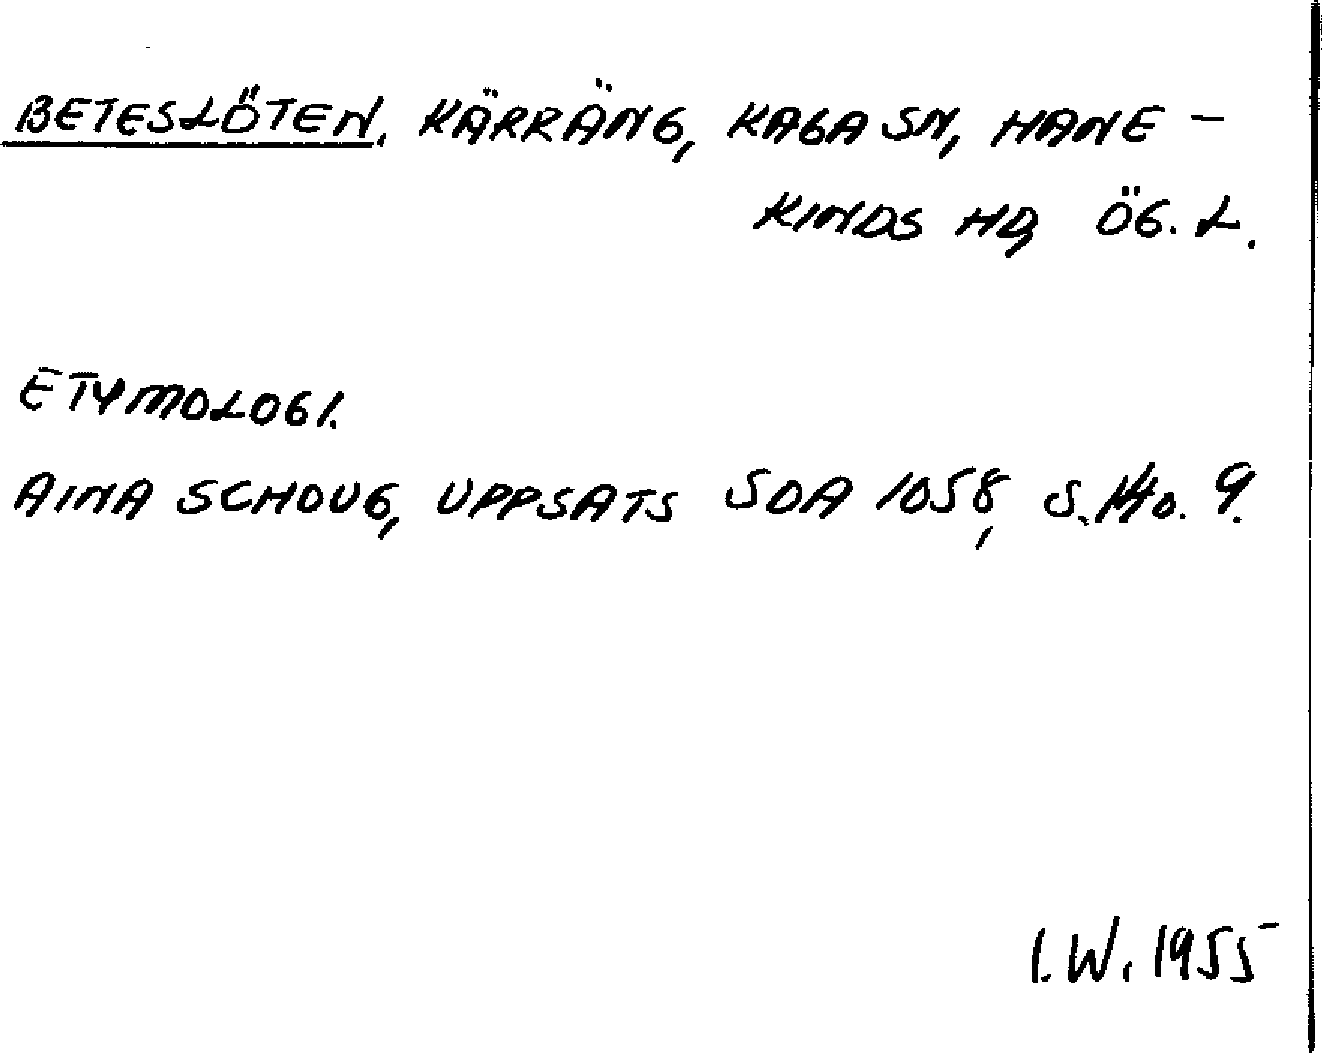 BETESLÖTEN. KÄRRÄNG, KAGA SN, HANE-
KINDS HD, ÖG. L.
ETYMOLOGI.
AINA SCHOUG, UPPSATS SOA 1058, S. 9.
I.W. 1955